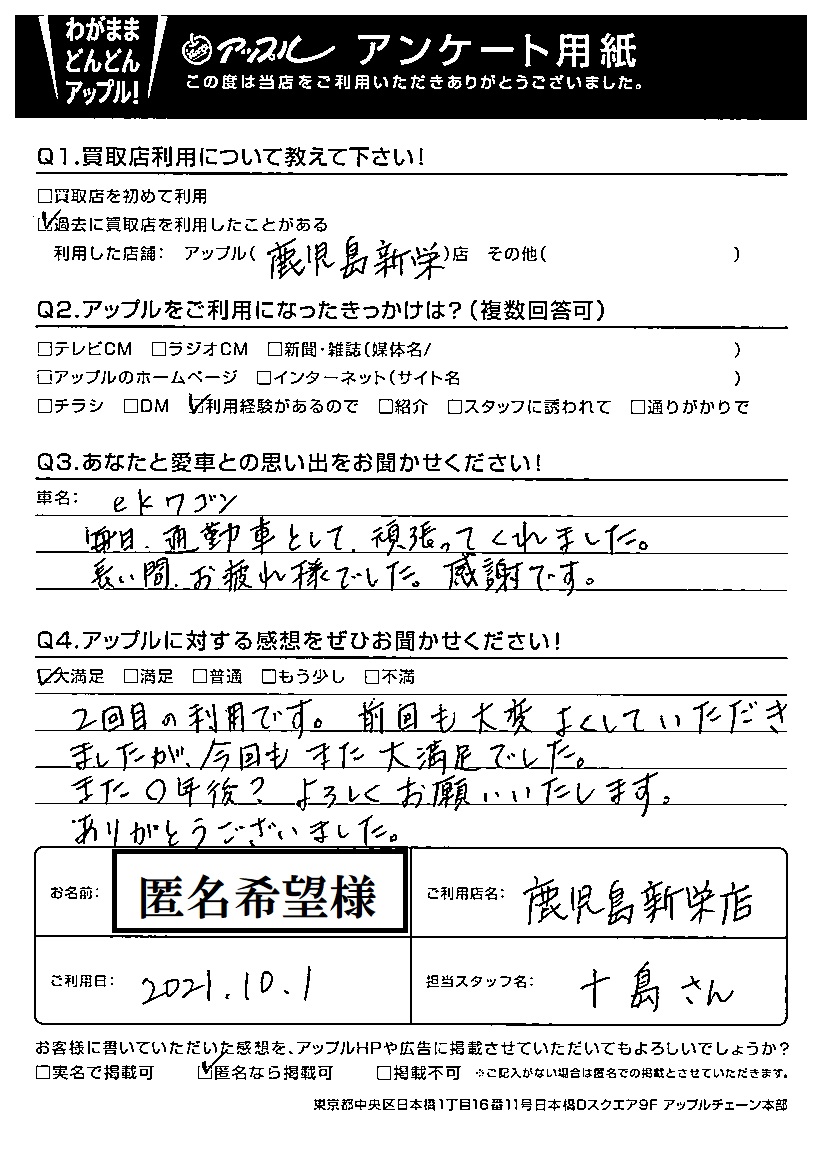 わがまま
どんどん
アップル!
アップル アンケート用紙
この度は当店をご利用いただきありがとうございました。
Q1.買取店利用について教えて下さい!
□買取店を初めて利用
☑過去に買取店を利用したことがある
利用した店舗: アップル(鹿児島新栄)店 その他( )
Q2.アップルをご利用になったきっかけは?(複数回答可)
□テレビCM □ラジオCM □新聞・雑誌(媒体名/ )
□アップルのホームページ □インターネット(サイト名 )
□チラシ □DM ☑利用経験があるので □紹介 □スタッフに誘われて □通りがかりで
Q3.あなたと愛車との思い出をお聞かせください!
車名: ekワゴン
毎日、通勤車として、頑張ってくれました。
長い間、お疲れ様でした。感謝です。
Q4.アップルに対する感想をぜひお聞かせください!
☑大満足 □満足 □普通 □もう少し □不満
2回目の利用です。前回も大変よくしていただき
ましたが、今回もまた大満足でした。
また〇年後?よろしくお願いいたします。
ありがとうございました。
お名前: 匿名希望様 ご利用店名: 鹿児島新栄店
ご利用日: 2021.10.1 担当スタッフ名: 十島さん
お客様に書いていただいた感想を、アップルHPや広告に掲載させていただいてもよろしいでしょうか?
□実名で掲載可 ☑匿名なら掲載可 □掲載不可 ※ご記入がない場合は匿名での掲載とさせていただきます。
東京都中央区日本橋1丁目16番11号日本橋Dスクエア9F アップルチェーン本部